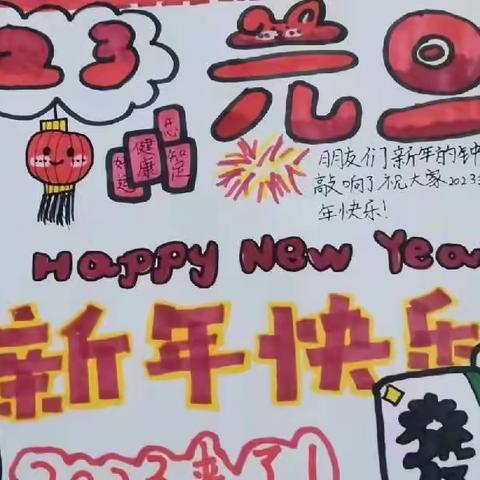 23 元旦
好运 健康 知足
朋友们新年的钟
敲响了祝大家2023
年快乐!
Happy New Yea
新年快乐
2023来了!
發